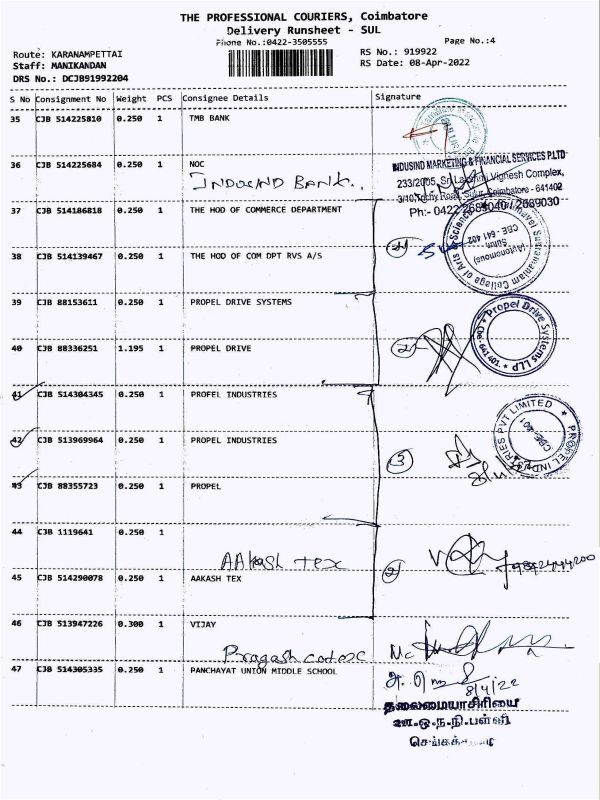 THE PROFESSIONAL COURIERS, Coimbatore
Delivery Runsheet - SUL
Phone No.:0422-3505555
Page No.:4
Route: KARANAMPETTAI
RS No.: 919922
Staff: MANIKANDAN
RS Date: 08-Apr-2022
DRS No.: DCJB91992204
S No Consignment No Weight PCS Consignee Details Signature
35 CJB 514225810 0.250 1 TMB BANK
36 CJB 514225684 0.250 1 NOC
INDUSIND BANK.,
INDUSIND MARKETING & FINANCIAL SERVICES P.LTD
233/2005, Sri Lakshmi Vignesh Complex,
3/10, Trichy Road, Sulur, Coimbatore - 641402
Ph:- 0422 2689040 / 2689030
37 CJB 514186818 0.250 1 THE HOD OF COMMERCE DEPARTMENT
38 CJB 514139467 0.250 1 THE HOD OF COM DPT RVS A/S
College of Arts
Science
(Autonomous)
Sulur
CBE - 641 402
39 CJB 88153611 0.250 1 PROPEL DRIVE SYSTEMS
Propel Drive Systems LLP
Cbe-641 401.
40 CJB 88336251 1.195 1 PROPEL DRIVE
2
41 CJB 514304345 0.250 1 PROFEL INDUSTRIES
42 CJB 513969964 0.250 1 PROPEL INDUSTRIES
3
PROPEL INDUSTRIES PVT LIMITED
CBE-401
43 CJB 88355723 0.250 1 PROPEL
44 CJB 1119641 0.250 1
AAkash tex
45 CJB 514290078 0.250 1 AAKASH TEX
2
46 CJB 513947226 0.300 1 VIJAY
47 CJB 514305335 0.250 1 PANCHAYAT UNION MIDDLE SCHOOL
8/4/22
தலைமையாசிரியை
ஊ.ஒ.ந.நி.பள்ளி